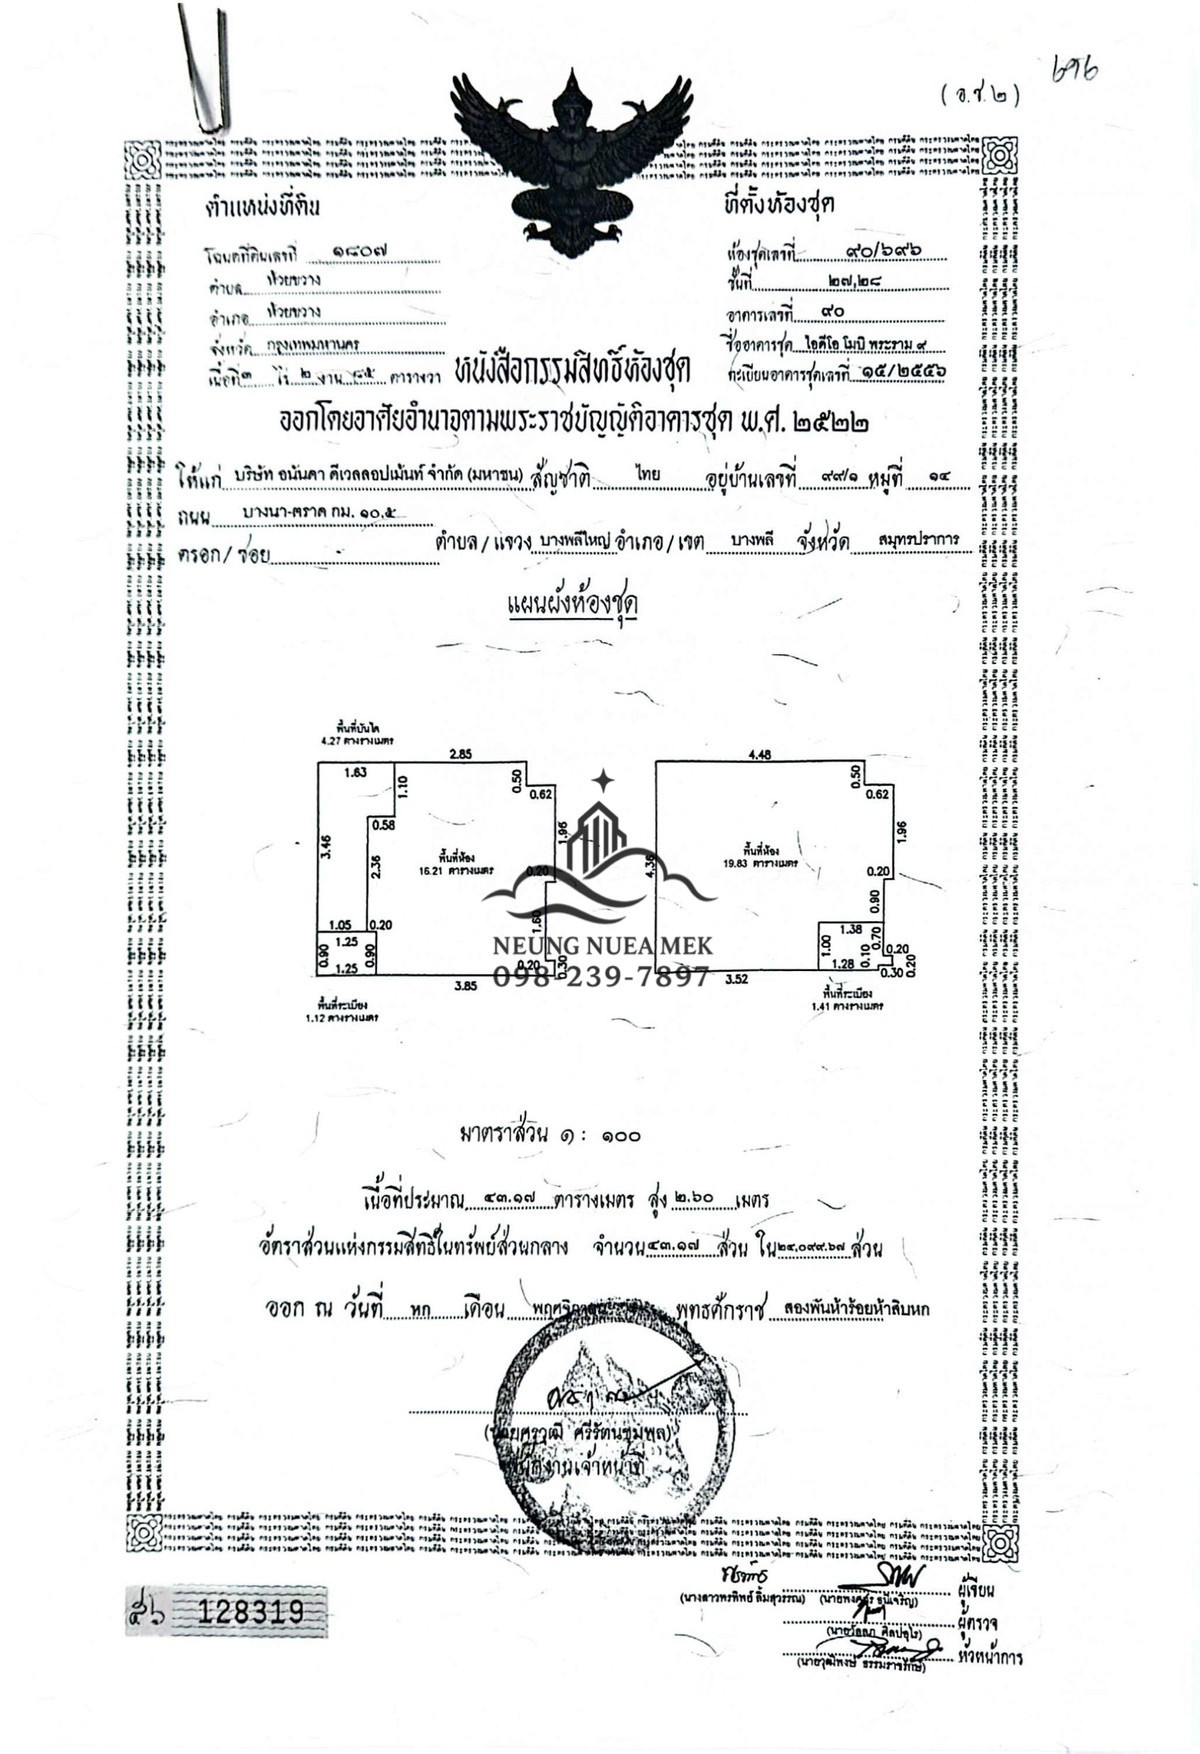 ๖๙๖
(อ.ช.๒)
ตำแหน่งที่ดิน
ที่ตั้งห้องชุด
โฉนดที่ดินเลขที่ ๑๘๐๗
ห้องชุดเลขที่ ๙๐/๖๙๖
ตำบล ห้วยขวาง
ชั้นที่ ๒๗,๒๘
อำเภอ ห้วยขวาง
อาคารเลขที่ ๙๐
จังหวัด กรุงเทพมหานคร
ชื่ออาคารชุด ไอดีโอ โมบิ พระราม ๙
เนื้อที่ ๓ ไร่ ๒ งาน ๘๕ ตารางวา
ทะเบียนอาคารชุดเลขที่ ๑๕/๒๕๕๖
หนังสือกรรมสิทธิ์ห้องชุด
ออกโดยอาศัยอำนาจตามพระราชบัญญัติอาคารชุด พ.ศ. ๒๕๒๒
ให้แก่ บริษัท อนันดา ดีเวลลอปเม้นท์ จำกัด (มหาชน) สัญชาติ ไทย อยู่บ้านเลขที่ ๙๙/๑ หมู่ที่ ๑๔
ถนน บางนา-ตราด กม. ๑๐.๕
ตรอก/ซอย - ตำบล/แขวง บางพลีใหญ่ อำเภอ/เขต บางพลี จังหวัด สมุทรปราการ
แผนผังห้องชุด
พื้นที่บันได
4.27 ตารางเมตร
2.85
4.48
1.63
1.10
0.50
0.62
0.50
0.62
3.46
0.58
2.36
พื้นที่ห้อง
16.21 ตารางเมตร
1.96
0.20
4.36
พื้นที่ห้อง
19.83 ตารางเมตร
1.96
0.20
0.90
1.05
0.20
1.60
1.38
0.70
0.90
1.25
0.90
1.00
0.10
0.20
1.25
0.20
0.30
1.28
0.30
0.20
3.85
3.52
NEUNG NUEA MEK
098-239-7897
พื้นที่ระเบียง
1.12 ตารางเมตร
พื้นที่ระเบียง
1.41 ตารางเมตร
มาตราส่วน ๑ : ๑๐๐
เนื้อที่ประมาณ ๔๓.๑๗ ตารางเมตร สูง ๒.๖๐ เมตร
อัตราส่วนแห่งกรรมสิทธิ์ในทรัพย์ส่วนกลาง จำนวน ๔๓.๑๗ ส่วน ใน ๒๔,๐๙๙.๖๗ ส่วน
ออก ณ วันที่ หก เดือน พฤศจิกายน พุทธศักราช สองพันห้าร้อยห้าสิบหก
เจ้าหน้าที่
๕๖ 128319
ผู้เขียน
ผู้ตรวจ
หัวหน้าการ